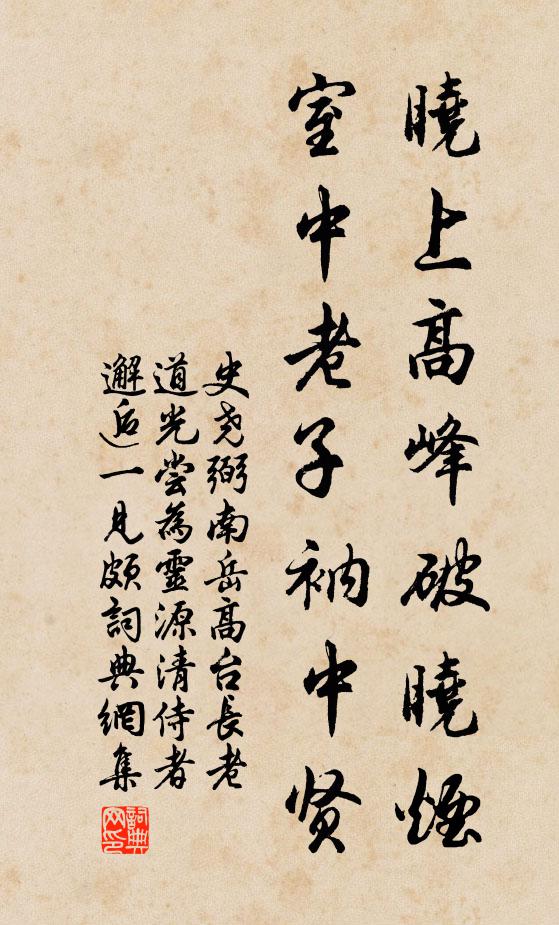 曉上高峰破曉煙
室中老子衲中賢
史尧弼南岳高台長老
道光尝為靈源清侍者
邂逅一見頗詞典網集
詞典
网印